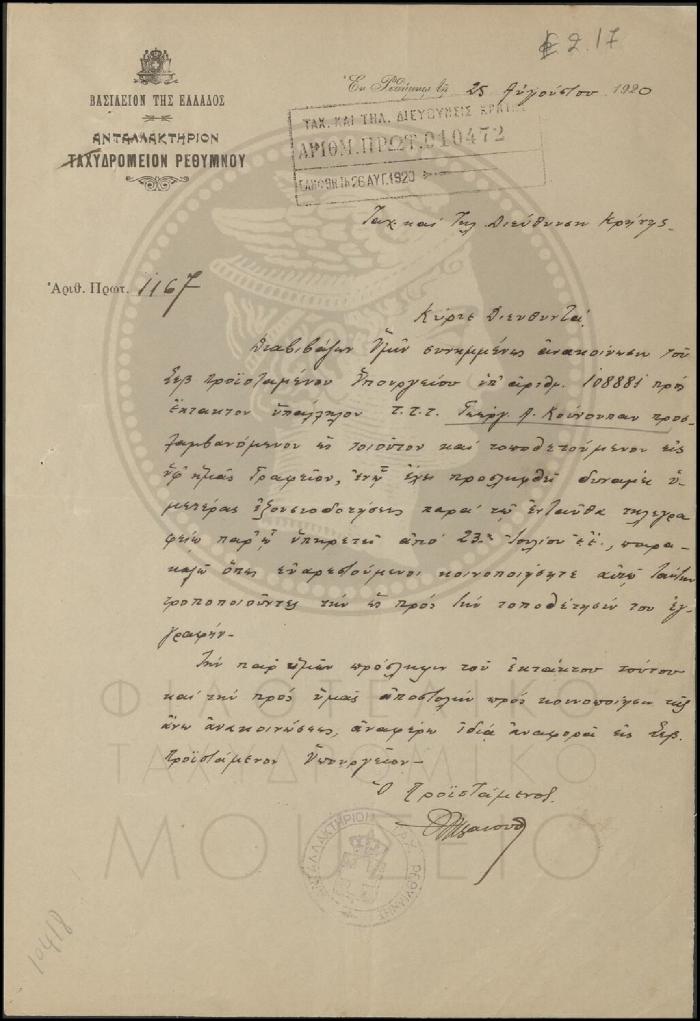 € 2.17
Ἐν Ρεθύμνῃ τῇ 25 Αὐγούστου 1920
ΒΑΣΙΛΕΙΟΝ ΤΗΣ ΕΛΛΑΔΟΣ
ΑΝΤΑΛΛΑΚΤΗΡΙΟΝ
ΤΑΧΥΔΡΟΜΕΙΟΝ ΡΕΘΥΜΝΟΥ
ΤΑΧ. ΚΑΙ ΤΗΛ. ΔΙΕΥΘΥΝΣΙΣ ΚΡΗΤΗΣ
ΑΡΙΘΜ. ΠΡΩΤ. 010472
ΕΛΗΦΘΗ ΤΗ 26 ΑΥΓ. 1920
Ταχ. καὶ Τηλ. Διεύθυνσιν Κρήτης.
Ἀριθ. Πρωτ. 1167
Κύριε Διευθυντά,
Διαβιβάζων ὑμῖν συνημμένως ἀνακοίνωσιν τοῦ
Σεβ προϊσταμένου Ὑπουργείου ὑπ' ἀριθμ. 108881 πρὸς
ἔκτακτον ὑπάλληλον τ.τ.τ. Γεώργ. Α. Κούνουπαν προσ-
λαμβανόμενον ὡς τοιοῦτον καὶ τοποθετούμενον εἰς
ὑφ' ἡμᾶς Γραφεῖον, ἔχει προσληφθεῖ δυνάμει ὑ-
μετέρας ἐξουσιοδοτήσεως παρὰ τῷ ἐνταῦθα τηλεγρα-
φείῳ παρ' ᾧ ὑπηρετεῖ ἀπὸ 23ης Ἰουλίου ἐ.ἔ., παρα-
καλῶ ὅπως εὐαρεστούμενοι κοινοποιήσητε αὐτῷ ταύτην
τροποποιοῦντες τὴν ὡς πρὸς τὴν τοποθέτησίν του ἐγ-
γραφήν.-
Τὴν παρ' ὑμῶν πρόσληψιν τοῦ ἐκτάκτου τούτου
καὶ τὴν πρὸς ὑμᾶς ἀποστολὴν πρὸς κοινοποίησιν τῆς
ἄνω ἀνακοινώσεως, ἀναφέρω ἰδίᾳ ἀναφορᾷ εἰς Σεβ.
προϊστάμενον Ὑπουργεῖον.-
Ὁ Προϊστάμενος
ΑΝΤΑΛΛΑΚΤΗΡΙΟΝ ΤΑΧ. ΡΕΘΥΜΝΗΣ
ΦΙΛΟΤΕΛΙΚΟ
ΤΑΧΥΔΡΟΜΙΚΟ
ΜΟΥΣΕΙΟ
10418